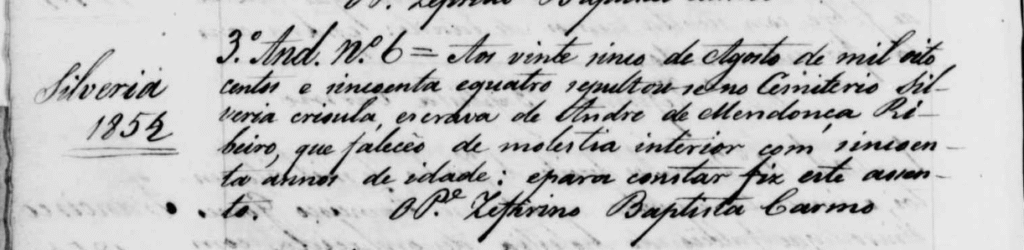 3.º And. Nº. 6 = Aos vinte sinco de Agosto de mil oito
Silveria
centos e sincoenta equatro sepultou-se no Cimiterio Sil-
1854
veria crioula, escrava de Andre de Mendonça Ri-
beiro, que faleceo de molestia interior com sincoen-
ta annos de idade: epara constar fiz este assen-
to. O Pe. Zefirino Baptista Carmo